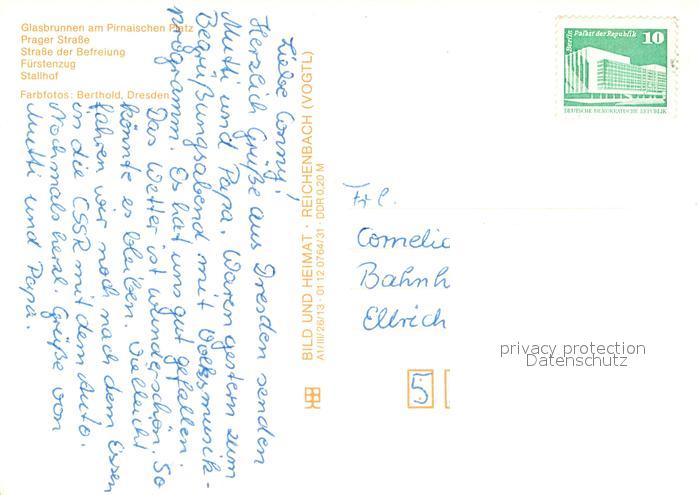 Glasbrunnen am Pirnaischen Platz
Prager Straße
Straße der Befreiung
Fürstenzug
Stallhof
Farbfotos: Berthold, Dresden
Liebe Conny!
Herzlich Grüße aus Dresden senden
Mutti und Papa. Waren gestern zum
Begrüßungsabend mit Volksmusik-
programm. Es hat uns gut gefallen.
Das Wetter ist wunderschön. So
könnte es bleiben. Vielleicht
fahren wir noch nach dem Essen
in die CSSR mit dem Auto.
Nochmals herzl. Grüße von
Mutti und Papa.
BILD UND HEIMAT · REICHENBACH (VOGTL)
A1/III/26/13 · 01 12 0764/31 DDR 0,20 M
Berlin, Palast der Republik
10
DEUTSCHE DEMOKRATISCHE REPUBLIK
Frl.
Cornelia
Bahnh
Ellrich
5
privacy protection
Datenschutz